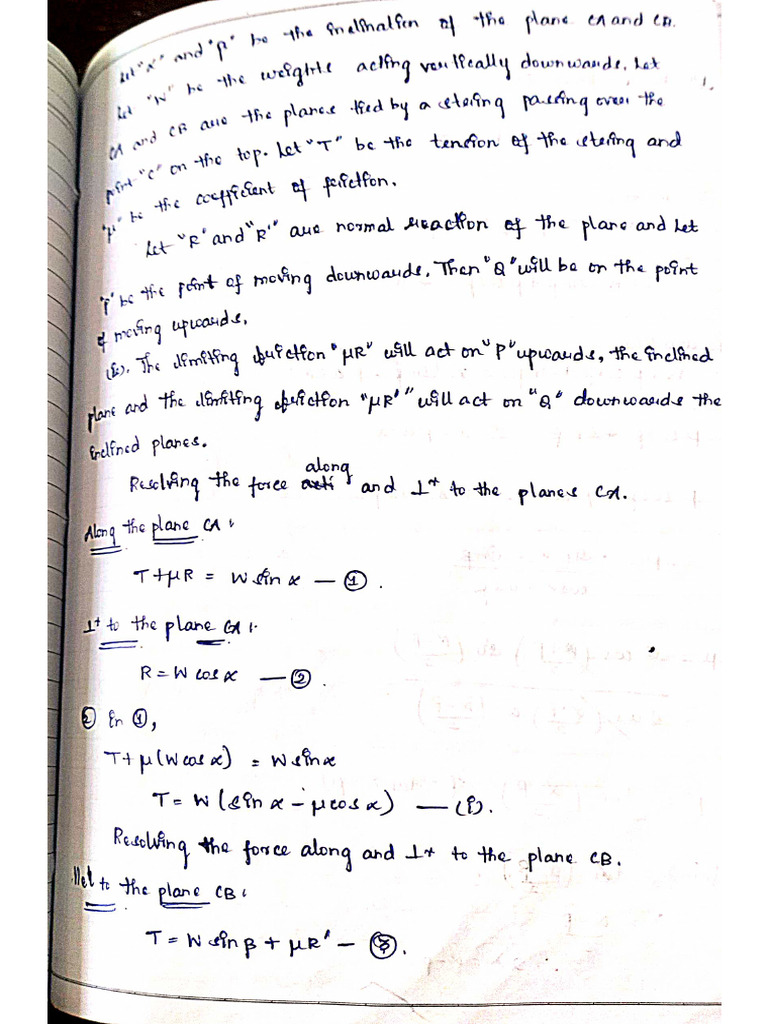 Let "α" and "β" be the inclination of the plane CA and CB.
Let "W" be the weights acting vertically downwards. Let
CA and CB are the planes tied by a string passing over the
point "C" on the top. Let "T" be the tension of the string and
"μ" be the coefficient of friction.
Let "R" and "R'" are normal reaction of the plane and let
"P" be the point of moving downwards. Then "Q" will be on the point
of moving upwards.
(ie). The limiting friction "μR" will act on "P" upwards, the inclined
plane and the limiting friction "μR'" will act on "Q" downwards the
inclined planes.
Resolving the force along and ⊥r to the planes CA.
Along the plane CA:
T+μR = W sin α — ①.
⊥r to the plane CA:
R = W cos α — ②.
② in ①,
T+ μ(W cos α) = W sin α
T = W (sin α - μ cos α) — (i).
Resolving the force along and ⊥r to the plane CB.
llel to the plane CB:
T = W sin β + μR' — ③.